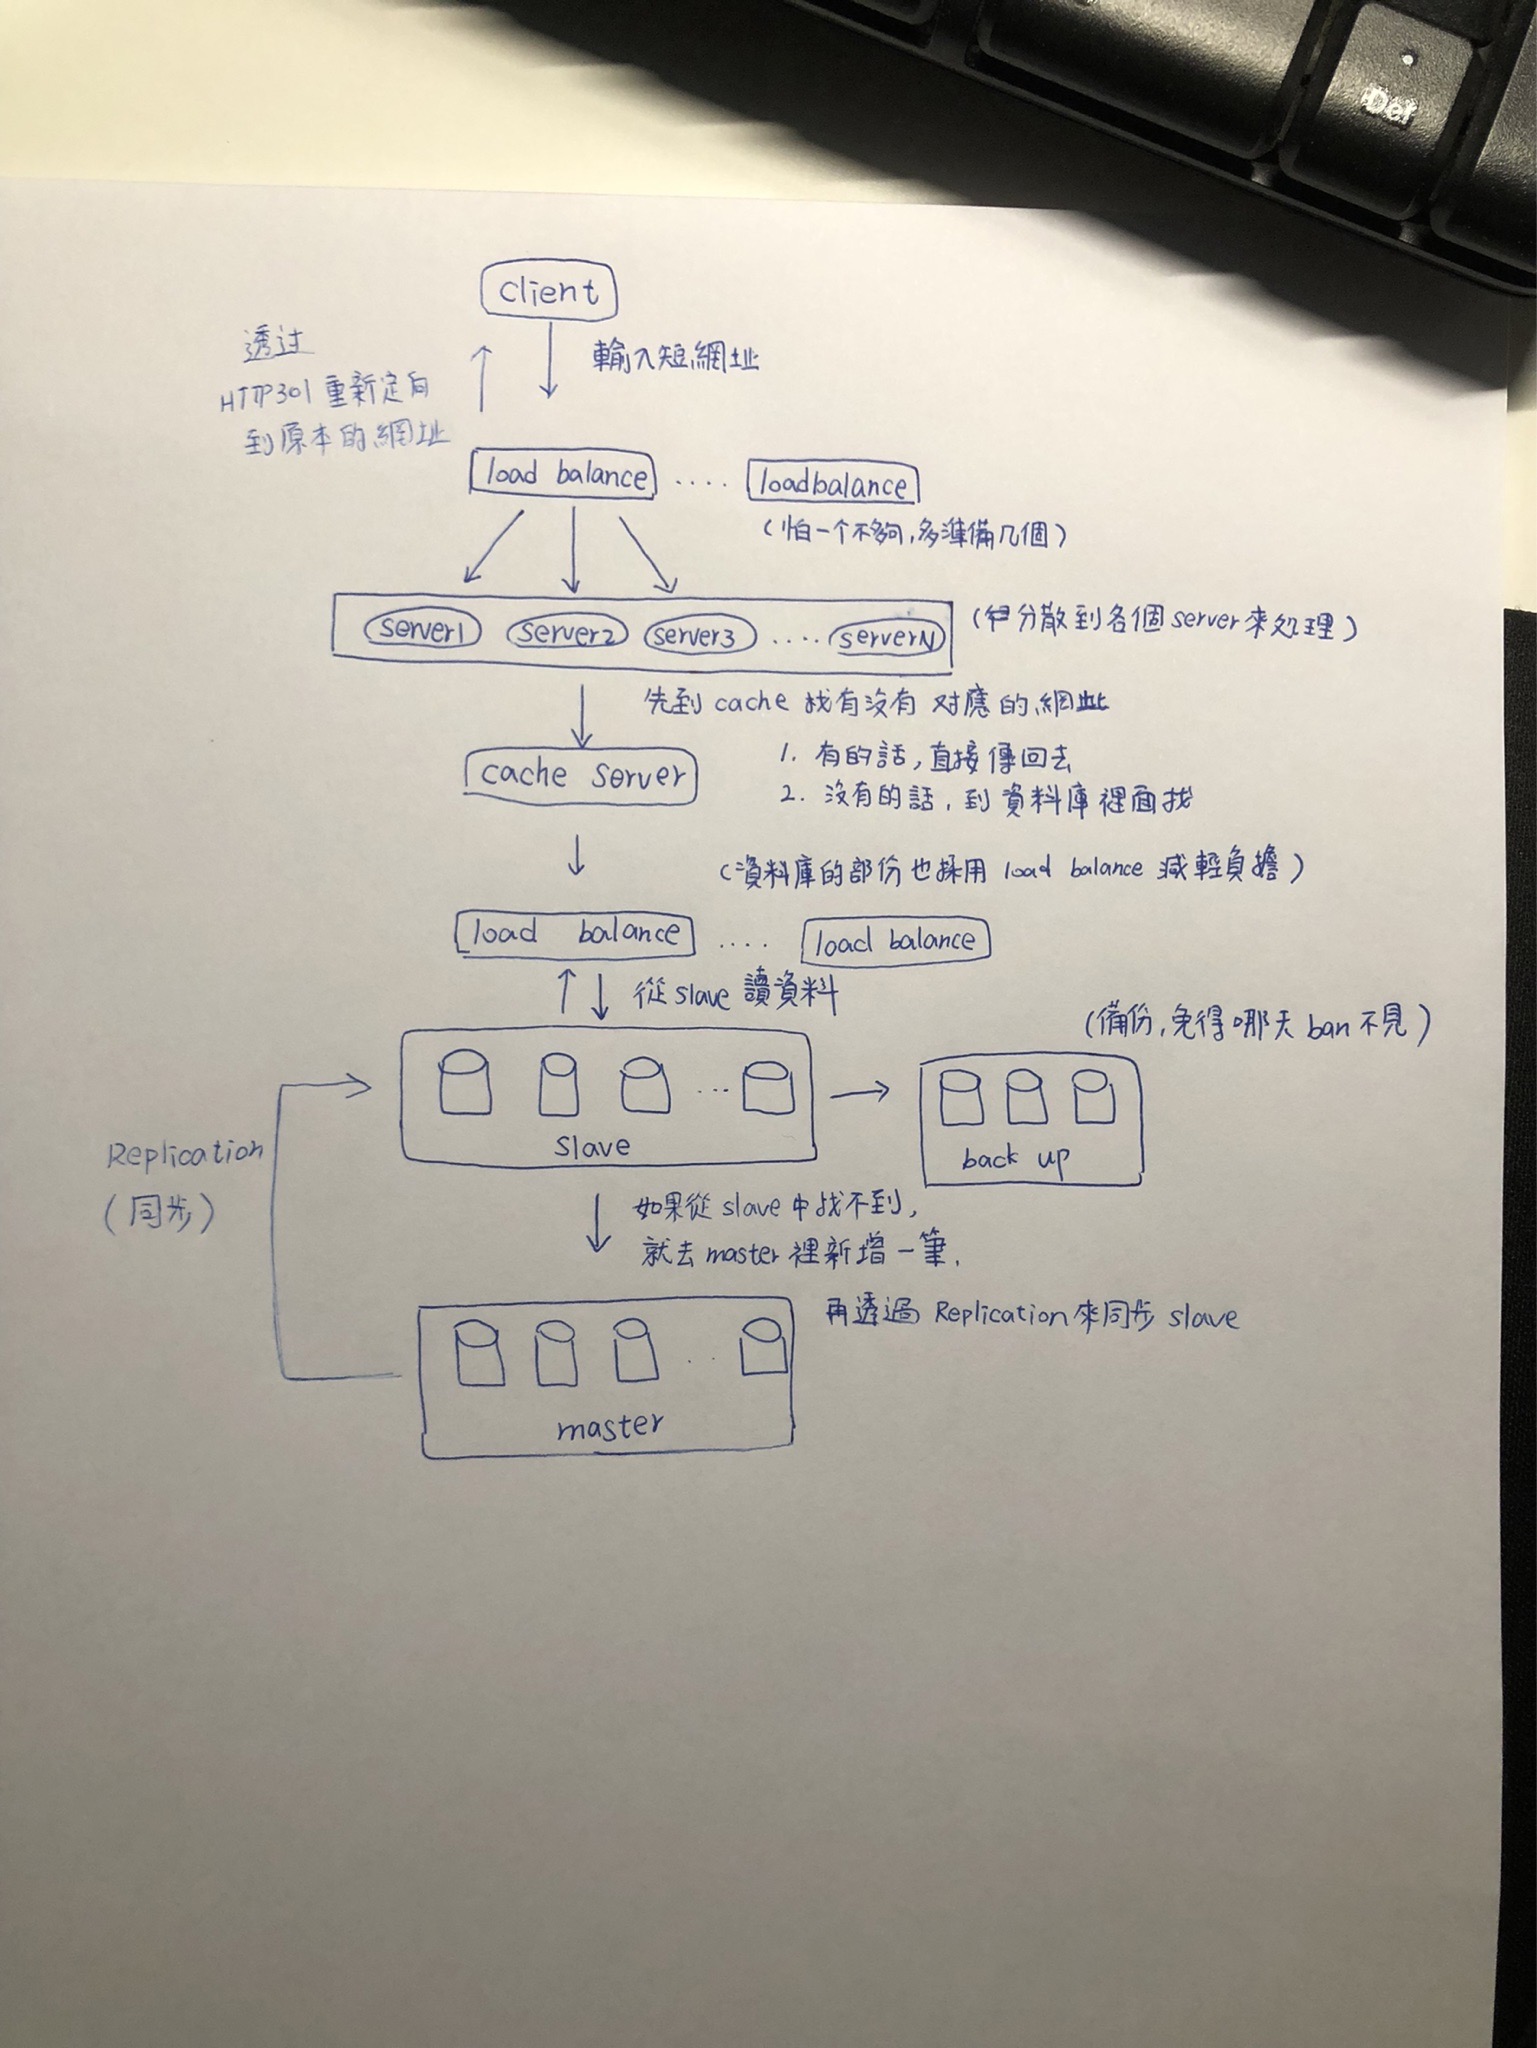 Del
client
透过
HTTP301重新定向
到原本的網址
輸入短網址
load balance .... loadbalance
(怕一个不夠,多準備几個)
server1 server2 server3 .... serverN
(分散到各個server來処理)
先到 cache 找有沒有 对應的網址
cache server
1. 有的話,直接傳回去
2. 沒有的話,到資料庫裡面找
(資料庫的部份也採用 load balance 減輕負擔)
load balance .... load balance
從slave 讀資料
(備份,免得哪天 ban 不見)
...
slave
back up
Replication
(同步)
如果從 slave 中找不到,
就去 master 裡新增一筆.
再透過 Replication來同步 slave
..
master